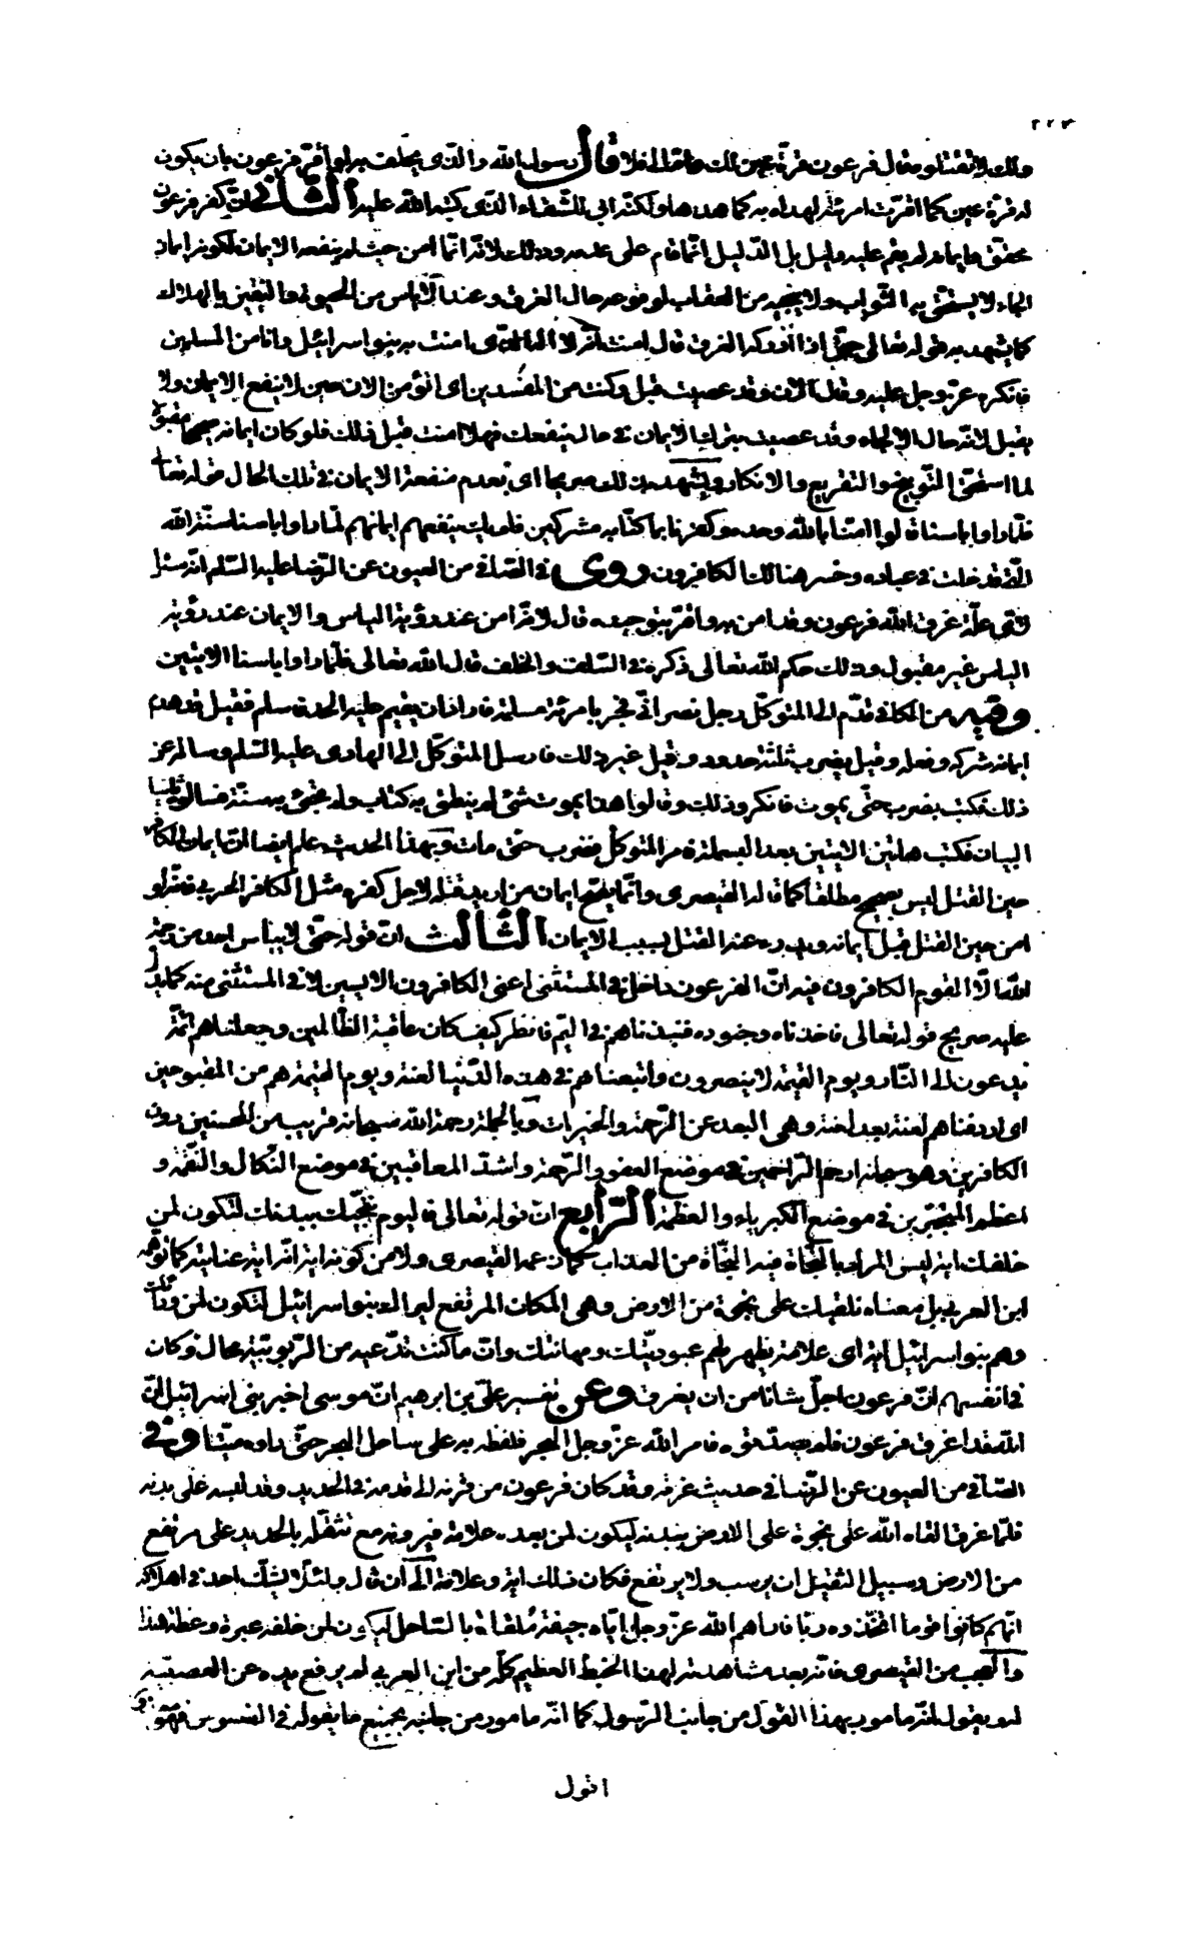 ٢٢٣
ولك لا تقتلوه فقال فرعون قرة عين لك فاما لى فلا قال رسول الله والذى يحلف به لو أقر فرعون بان يكون
له قرة عين كما اقرت امرئته لهداه به كما هداها ولكنه ابى للشقاء الذى كتبه الله عليه الثانى ان كفر فرعون
محقق وايمانه لم يقم عليه دليل بل الدليل انما قام على عدمه وذلك لانه انما امن حيث لم ينفعه الايمان لكونه ايمان
الجاء لا يستحق به الثواب ولا ينجيه من العقاب لوقوعه حال الغرق وعند الاياس من الحيوة واليقين بالهلاك
كما يشهد به قوله تعالى حتى اذا ادركه الغرق قال امنت انه لا اله الا الذى امنت به بنو اسرائيل وانا من المسلمين
فانكره عز وجل عليه وقال الان وقد عصيت قبل وكنت من المفسدين اى اتؤمن الان حين لا ينفع الايمان ولا
يقبل لانه حال الالجاء وقد عصيت بترك الايمان فى حال ينفعك فهلا امنت قبل ذلك فلو كان ايمانه صحيحا مقبولا
لما استحق التوبيخ والتقريع والانكار ويشهد بذلك صريحا اى بعدم منفعة الايمان فى تلك الحال قوله تعالى
فلما راوا باسنا قالوا امنا بالله وحده وكفرنا بما كنا به مشركين فلم يك ينفعهم ايمانهم لما راوا باسنا سنة الله
التى قد خلت فى عباده وخسر هنالك الكافرون روى فى الصافى من العيون عن الرضا عليه السلم انه سئل
لاى علة غرق الله فرعون وقد امن به واقر بتوحيده قال لانه امن عند رؤية الباس والايمان عند رؤية
الباس غير مقبول وذلك حكم الله تعالى ذكره فى السلف والخلف قال الله تعالى فلما راوا باسنا الايتين
وفيه من الكافى قدم الى المتوكل رجل نصرانى فجر بامرئة مسلمة فاراد ان يقيم عليه الحد فاسلم فقيل قد هدم
ايمانه شركه وفعله وقيل يضرب ثلثة حدود وقيل غير ذلك فارسل المتوكل الى الهادى عليه السلم وساله عن
ذلك فكتب يضرب حتى يموت فانكروا ذلك وقالوا هذا شئ لم ينطق به كتاب ولم تجئ به سنة فسالوه ثانيا
البيان فكتب هاتين الايتين بعد البسملة فامر المتوكل فضرب حتى مات وبهذا الحديث علم ايضا ان ايمان الكافر
حين القتل ليس بصحيح مطلقا كما قاله القيصرى وانما يصح ايمان من اريد قتله لاجل كفره مثل الكافر الحربى فانه لو
امن حين القتل قبل ايمانه عند القتل بسبب الايمان الثالث ان قوله حتى لا ييأس احد من رحمة
الله الا القوم الكافرون فيه ان الفرعون داخل فى المستثنى اعنى الكافرون الايسين لا فى المستثنى منه كما يدل
عليه صريح قوله تعالى فاخذناه وجنوده فنبذناهم فى اليم فانظر كيف كان عاقبة الظالمين وجعلناهم ائمة
يدعون الى النار ويوم القيمة لا ينصرون واتبعناهم فى هذه الدنيا لعنة ويوم القيمة هم من المقبوحين
اى اردفناهم لعنة بعد لعنة وهى البعد عن الرحمة والخيرات وبالجملة رحمة الله سبحانه قريب من المحسنين دون
الكافرين وهو سبحانه ارحم الراحمين فى موضع العفو والرحمة واشد المعاقبين فى موضع النكال والنقمة و
اعظم المتجبرين فى موضع الكبرياء والعظمة الرابع ان قوله تعالى فاليوم ننجيك ببدنك لتكون لمن
خلفك اية ليس المراد بالنجاة فيه النجاة من العذاب كما زعمه القيصرى ولا من كونه اية انه اية عناية كما توهمه
ابن العربى بل معناه نلقيك على نجوة من الارض وهى المكان المرتفع ليراك بنو اسرائيل لتكون لمن ورائك
وهم بنو اسرائيل اية اى علامة يظهر لهم عبوديتك ومهانتك وان ما كنت تدعيه من الربوبية محال وكان
فى انفسهم ان فرعون اجل شانا من ان يغرق وعن تفسير على بن ابرهيم ان موسى اخبر بنى اسرائيل ان
الله قد اغرق فرعون فلم يصدقوه فامر الله عز وجل البحر فلفظ به على ساحل البحر حتى راوه ميتا وفى
الصافى من العيون عن الرضا فى حديث غرقه وقد كان فرعون من قرنه الى قدمه فى الحديد وقد لبسه على بدنه
فلما غرق القاه الله على نجوة على الارض ببدنه ليكون لمن بعده علامة فيرونه مع تثقله بالحديد على مرتفع
من الارض وسبيل الثقيل ان يرسب ولا يرتفع فكان ذلك اية وعلامة الى ان قال ولئلا يشك احد فى اهلاكه
انهم كانوا قوما اتخذوه ربا فاراهم الله عز وجل اياه جيفة ملقاة بالساحل ليكون لمن خلفه عبرة وعظة هذا
والعجب من القيصرى فانه بعد مشاهدته لهذا الخبط العظيم كله من ابن العربى لم يرفع يده عن العصبية
له ويقول انه مامور بهذا القول من جانب الرسول كما انه مامور من جانبه بجميع ما يقوله فى الفصوص فهو
اقول